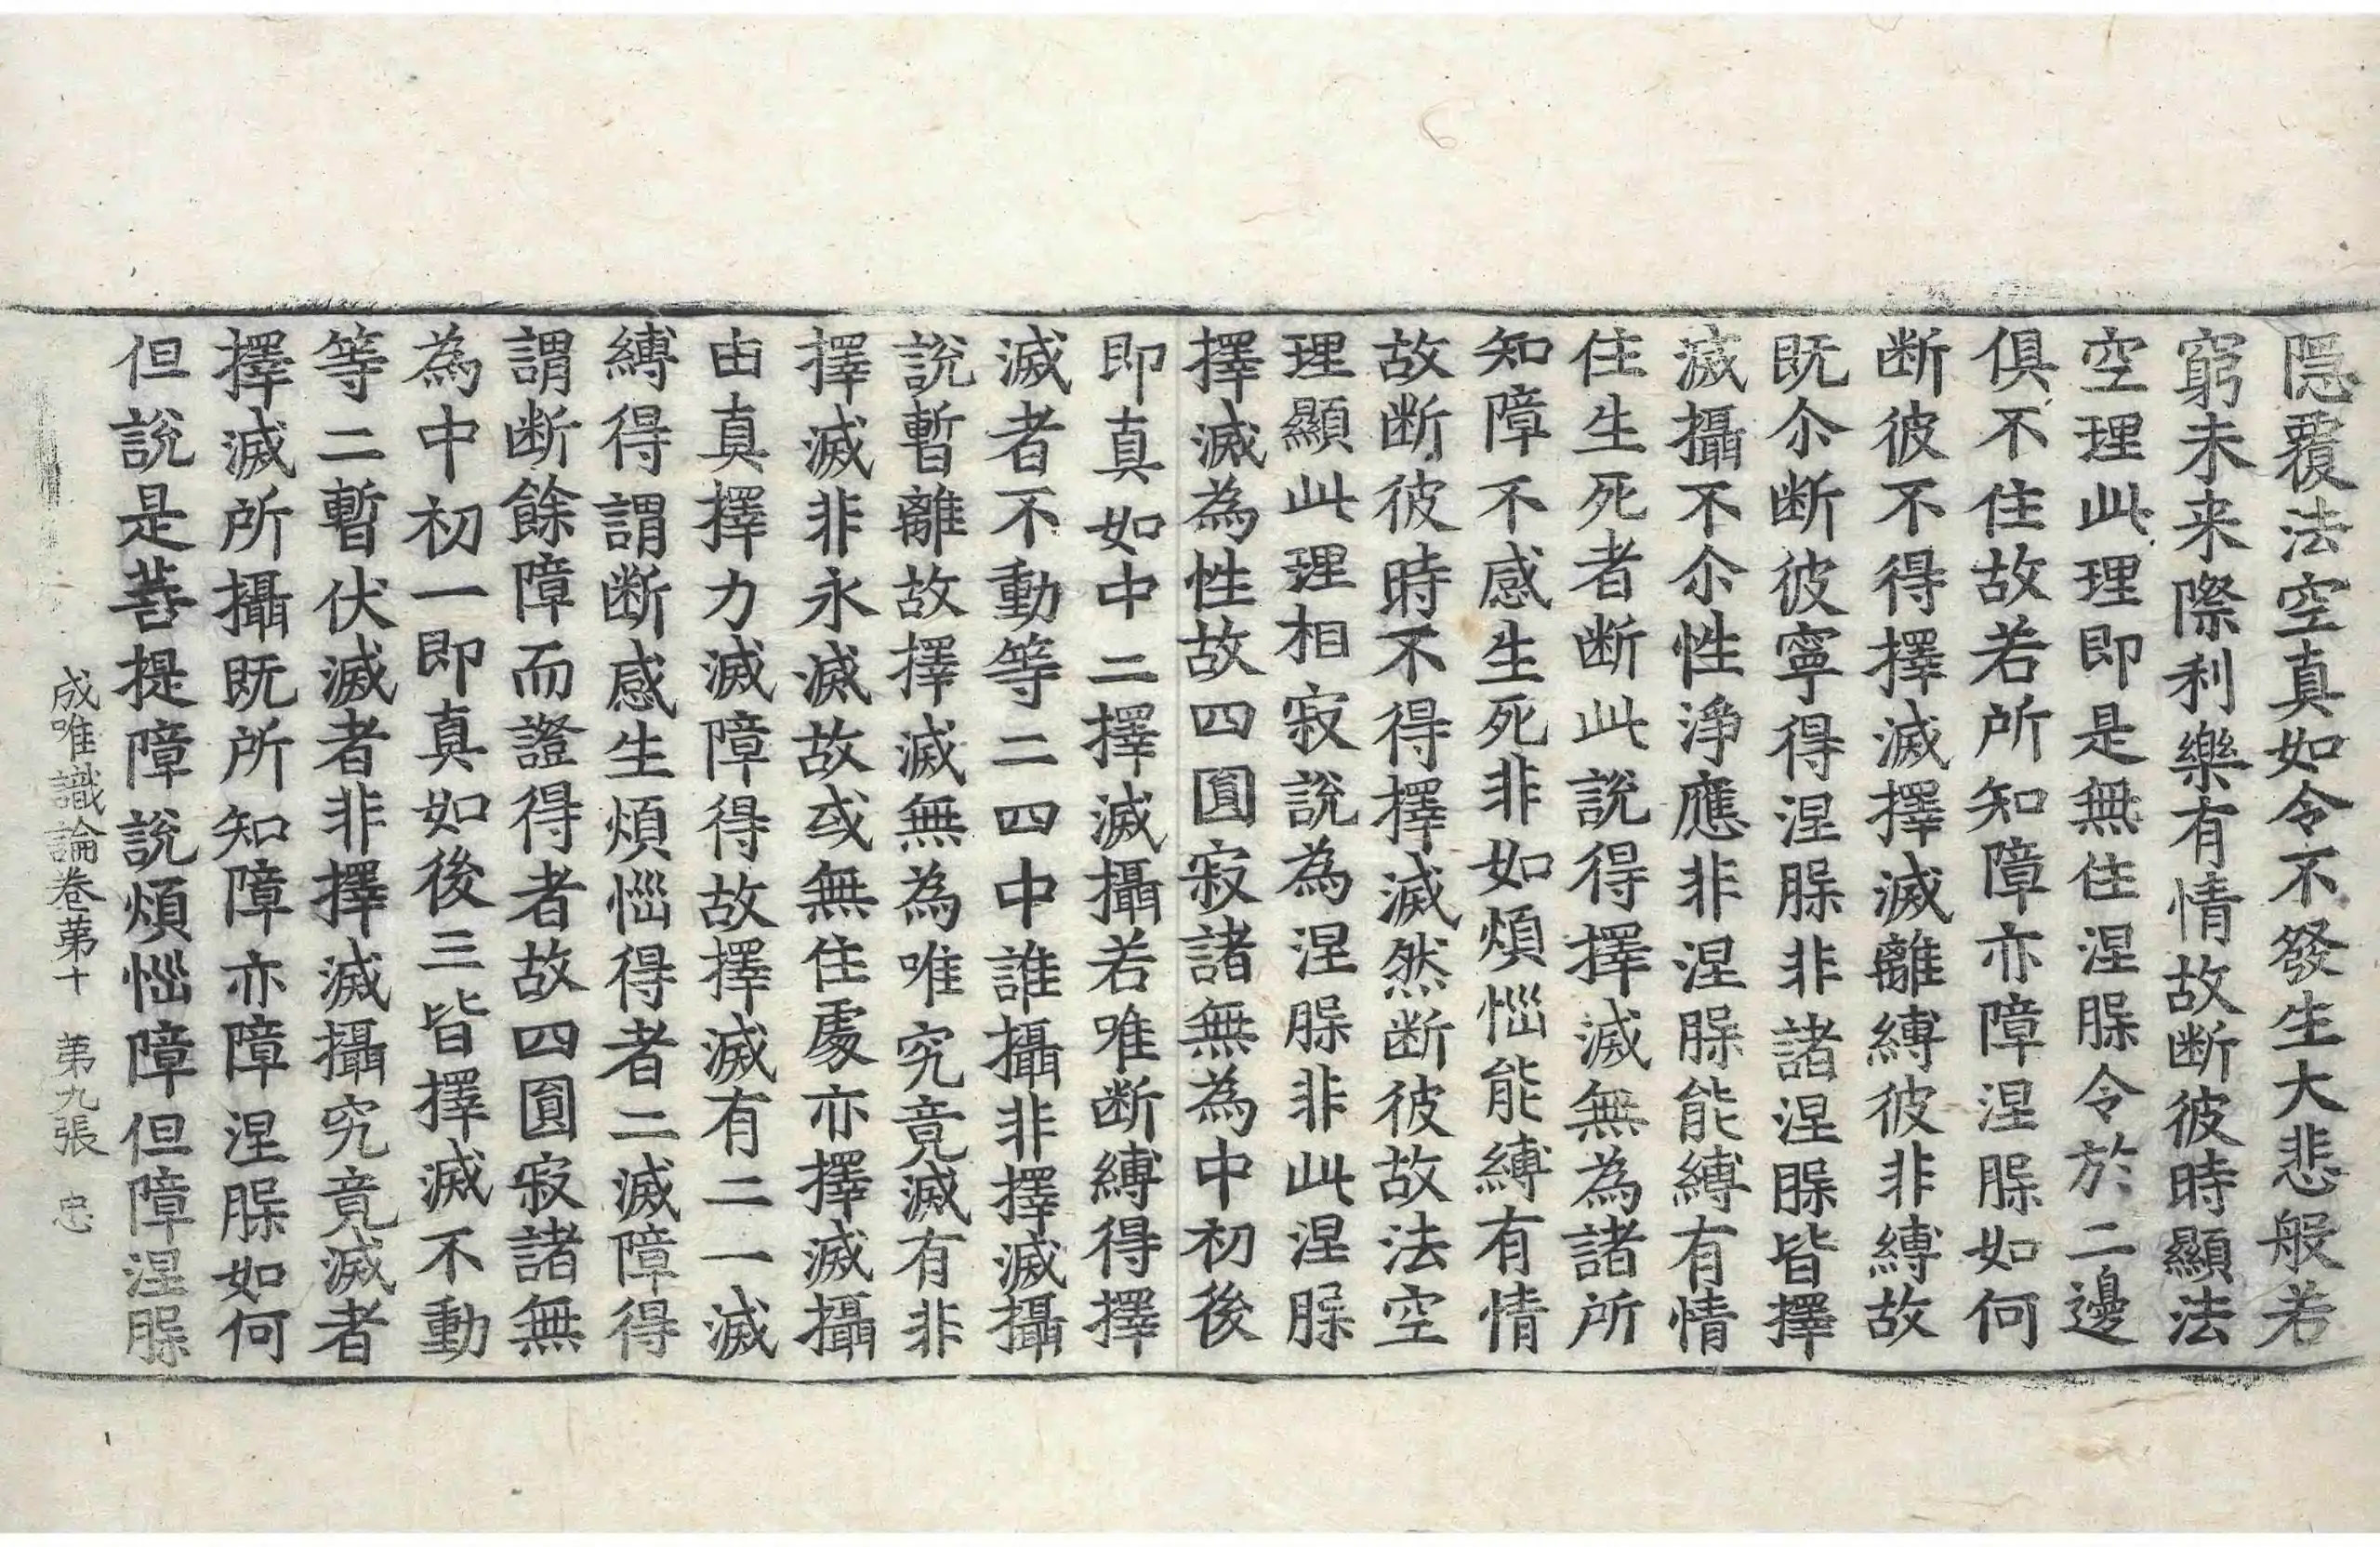 隱覆法空真如令不發生大悲般若
窮未来際利樂有情故断彼時顯法
空理此理即是無住涅槃令於二邊
俱不住故若所知障亦障涅槃如何
断彼不得擇滅擇滅離縛彼非縛故
既尒断彼寧得涅槃非諸涅槃皆擇
滅攝不尒性淨應非涅槃能縛有情
住生死者断此說得擇滅無為諸所
知障不感生死非如煩惱能縛有情
故断彼時不得擇滅然断彼故法空
理顯此理相寂說為涅槃非此涅槃
擇滅為性故四圓寂諸無為中初後
即真如中二擇滅攝若唯断縛得擇
滅者不動等二四中誰攝非擇滅攝
說暫離故擇滅無為唯究竟滅有非
擇滅非永滅故或無住處亦擇滅攝
由真擇力滅障得故擇滅有二一滅
縛得謂断感生煩惱得者二滅障得
謂断餘障而證得者故四圓寂諸無
為中初一即真如後三皆擇滅不動
等二暫伏滅者非擇滅攝究竟滅者
擇滅所攝既所知障亦障涅槃如何
但說是菩提障說煩惱障但障涅槃
成唯識論卷第十　第九張　忠